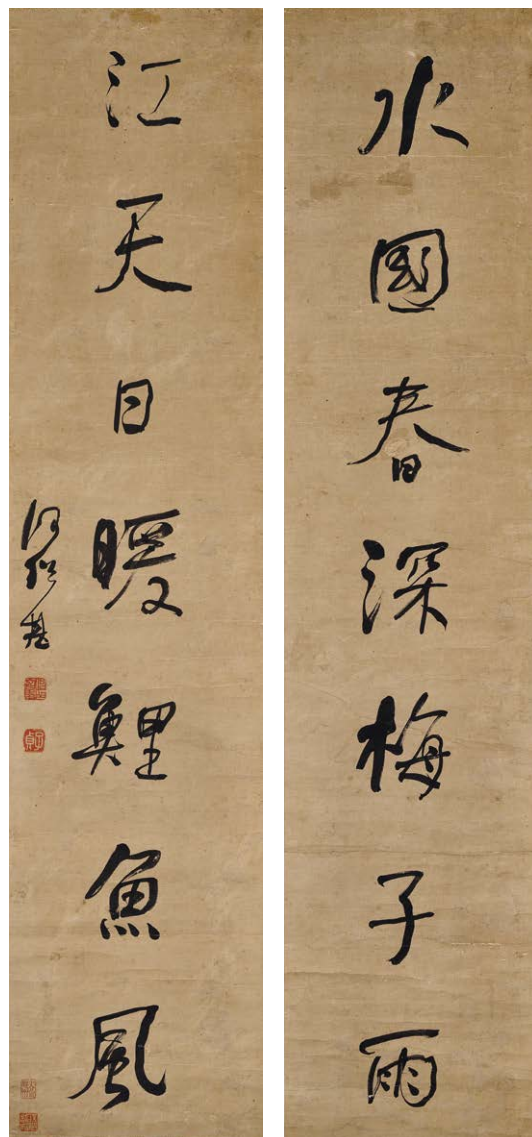 水國春深梅子雨
江天日暖鯉魚風
何紹基